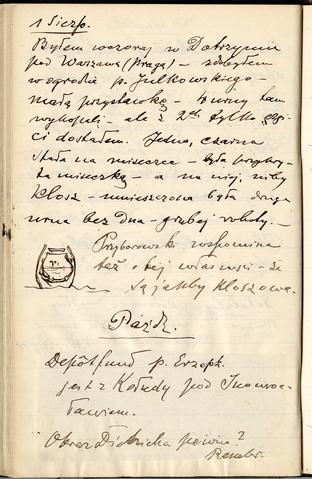 1 Sierp.
Byłem wczoraj w Dotrzymie
pod Warszawą (Praga) – zdobyłem
w ogrodzie p. Julkowskiego –
małą przystawkę – 4 urny tam
wykopali – ale z 2ch tylko części
dostałem. Jedna, czarna
stała na miseczce – była przykry-
ta miseczką – a na niej, niby
klosz – umieszczona była druga
urna bez dna – grubej roboty. –
Przyborowski wspomina
też o tej własności – że
są jakby kloszowe.
Paźdz.
Depôtfund p. Erzepk.
jest z Kołudy pod Inowroc-
ławiem.
Obraz Dietricha pewnie?
Rembr.